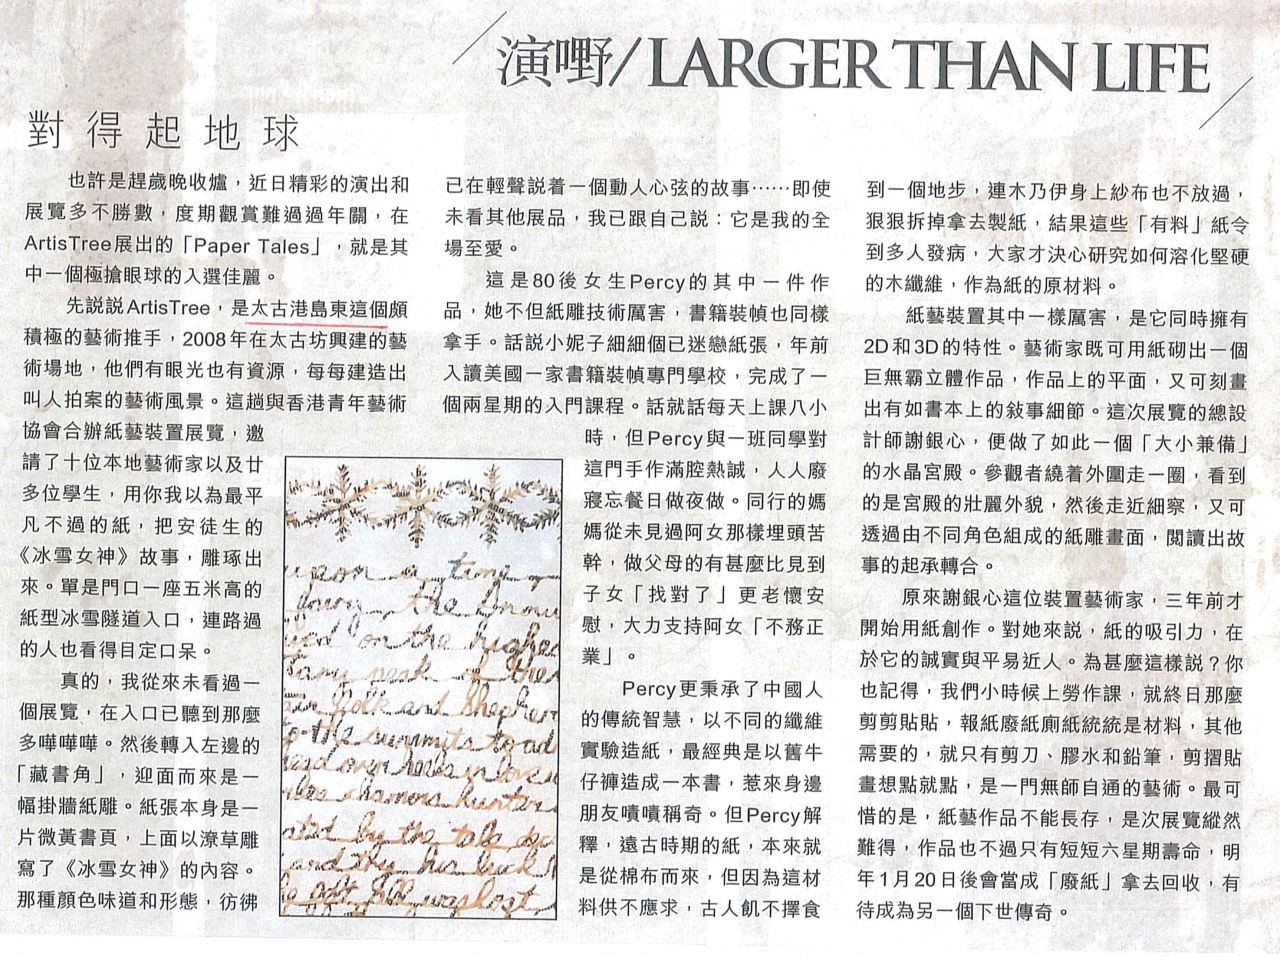 演嘢/LARGER THAN LIFE
對得起地球
也許是趕歲晚收爐，近日精彩的演出和
展覽多不勝數，度期觀賞難過過年關，在
ArtisTree展出的「Paper Tales」，就是其
中一個極搶眼球的入選佳麗。
先説説ArtisTree，是太古港島東這個頗
積極的藝術推手，2008年在太古坊興建的藝
術場地，他們有眼光也有資源，每每建造出
叫人拍案的藝術風景。這趟與香港青年藝術
協會合辦紙藝裝置展覽，邀
請了十位本地藝術家以及廿
多位學生，用你我以為最平
凡不過的紙，把安徒生的
《冰雪女神》故事，雕琢出
來。單是門口一座五米高的
紙型冰雪隧道入口，連路過
的人也看得目定口呆。
真的，我從來未看過一
個展覽，在入口已聽到那麼
多嘩嘩嘩。然後轉入左邊的
「藏書角」，迎面而來是一
幅掛牆紙雕。紙張本身是一
片微黃書頁，上面以潦草雕
寫了《冰雪女神》的內容。
那種顏色味道和形態，彷彿
已在輕聲説着一個動人心弦的故事……即使
未看其他展品，我已跟自己説：它是我的全
場至愛。
這是80後女生Percy的其中一件作
品，她不但紙雕技術厲害，書籍裝幀也同樣
拿手。話説小妮子細細個已迷戀紙張，年前
入讀美國一家書籍裝幀專門學校，完成了一
個兩星期的入門課程。話就話每天上課八小
時，但Percy與一班同學對
這門手作滿腔熱誠，人人廢
寢忘餐日做夜做。同行的媽
媽從未見過阿女那樣埋頭苦
幹，做父母的有甚麼比見到
子女「找對了」更老懷安
慰，大力支持阿女「不務正
業」。
Percy更秉承了中國人
的傳統智慧，以不同的纖維
實驗造紙，最經典是以舊牛
仔褲造成一本書，惹來身邊
朋友嘖嘖稱奇。但Percy解
釋，遠古時期的紙，本來就
是從棉布而來，但因為這材
料供不應求，古人飢不擇食
到一個地步，連木乃伊身上紗布也不放過，
狠狠拆掉拿去製紙，結果這些「有料」紙令
到多人發病，大家才決心研究如何溶化堅硬
的木纖維，作為紙的原材料。
紙藝裝置其中一樣厲害，是它同時擁有
2D和3D的特性。藝術家既可用紙砌出一個
巨無霸立體作品，作品上的平面，又可刻畫
出有如書本上的敍事細節。這次展覽的總設
計師謝銀心，便做了如此一個「大小兼備」
的水晶宮殿。參觀者繞着外圍走一圈，看到
的是宮殿的壯麗外貌，然後走近細察，又可
透過由不同角色組成的紙雕畫面，閱讀出故
事的起承轉合。
原來謝銀心這位裝置藝術家，三年前才
開始用紙創作。對她來説，紙的吸引力，在
於它的誠實與平易近人。為甚麼這樣説？你
也記得，我們小時候上勞作課，就終日那麼
剪剪貼貼，報紙廢紙廁紙統統是材料，其他
需要的，就只有剪刀、膠水和鉛筆，剪摺貼
畫想點就點，是一門無師自通的藝術。最可
惜的是，紙藝作品不能長存，是次展覽縱然
難得，作品也不過只有短短六星期壽命，明
年1月20日後會當成「廢紙」拿去回收，有
待成為另一個下世傳奇。
upon a time
the Snow
on the highe
peak of the
Folk and Shepher
the summits to ad
over heels in love
chamois hunter
ated by the tale
and they his luck
was lost